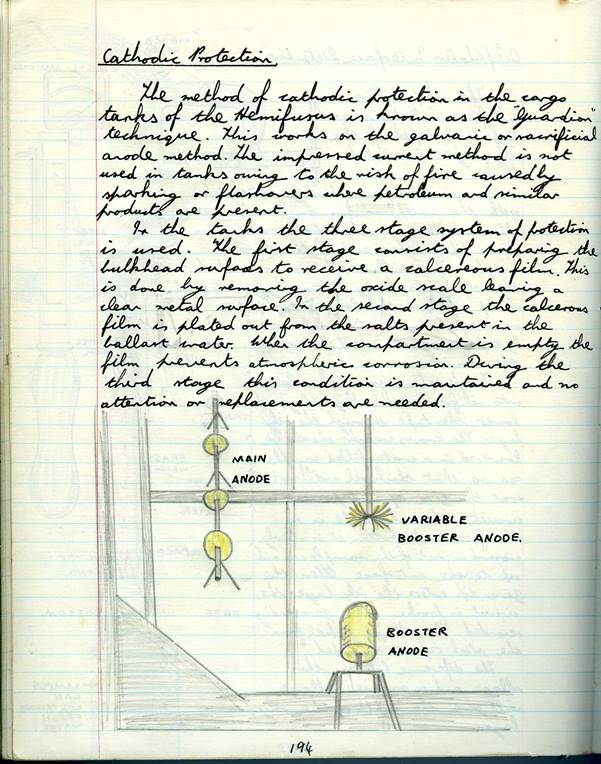 Cathodic Protection.
The method of cathodic protection in the cargo
tanks of the Hemifusus is known as the "Guardion"
technique. This works on the galvanic or sacrificial
anode method. The impressed current method is not
used in tanks owing to the risk of fire caused by
sparking or flashovers where petroleum and similar
products are present.
In the tanks the three stage system of protection
is used. The first stage consists of preparing the
bulkhead surfaces to receive a calcereous film. This
is done by removing the oxide scale leaving a
clean metal surface. In the second stage the calcerous
film is plated out from the salts present in the
ballast water. When the compartment is empty the
film prevents atmospheric corrosion. During the
third stage this condition is maintained and no
attention or replacements are needed.
MAIN
ANODE
VARIABLE
BOOSTER ANODE.
BOOSTER
ANODE
194